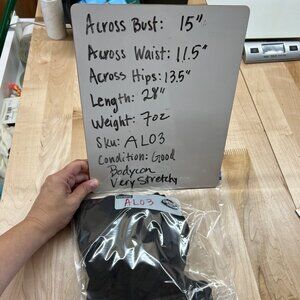 Across Bust: 15"
Across Waist: 11.5"
Across Hips: 13.5"
Length: 28"
Weight: 7oz
Sku: AL03
Condition: Good
Bodycon
Very Stretchy
AL03